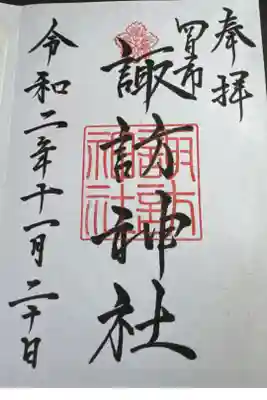 奉拝
諏訪神社
諏訪神社
令和二年十一月二十日